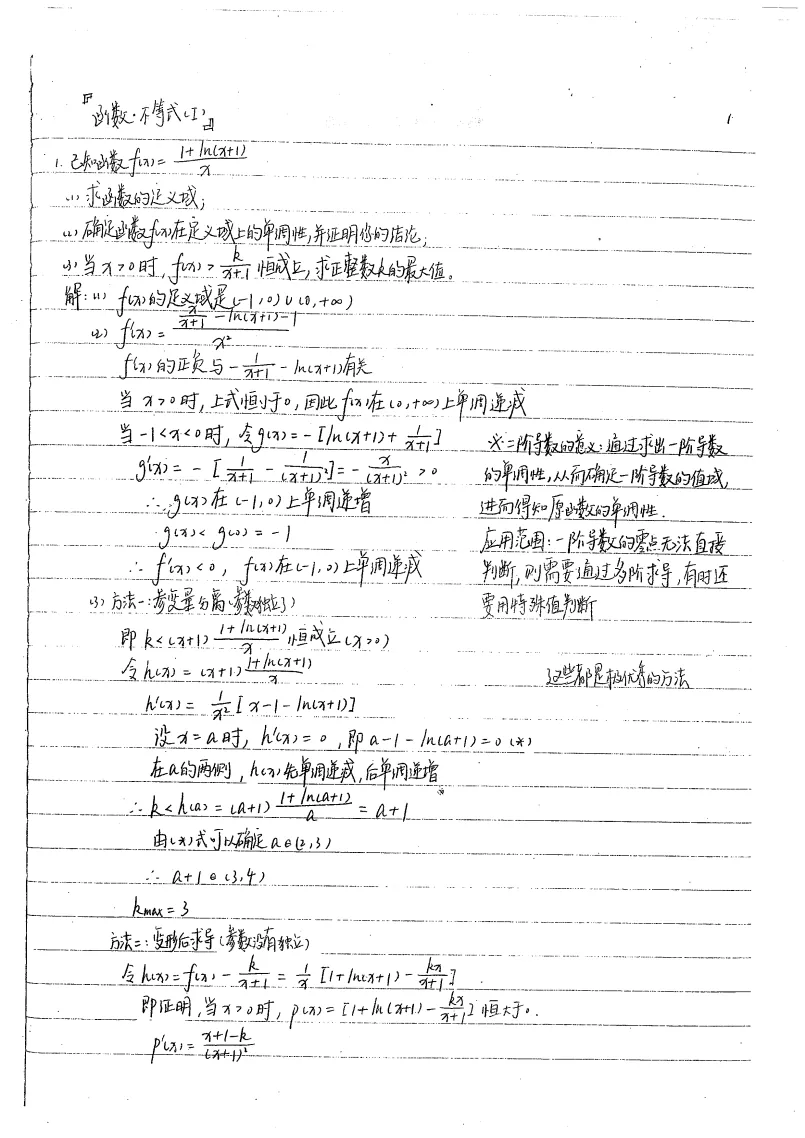 『函数·不等式(I)』
1
1. 已知函数f(x)= (1+ln(x+1))/x
(1) 求函数的定义域;
(2) 确定函数f(x)在定义域上的单调性,并证明你的结论;
(3) 当x>0时, f(x)> k/(x+1) 恒成立, 求正整数k的最大值。
解:(1) f(x)的定义域是(-1,0)∪(0,+∞)
(2) f'(x)= (x/(x+1) - ln(x+1) - 1)/x²
f'(x)的正负与 - 1/(x+1) - ln(x+1)有关
当 x>0时, 上式恒小于0, 因此f(x)在(0,+∞)上单调递减
当-1<x<0时, 令g(x)= -[ln(x+1)+ 1/(x+1)]
g'(x)= -[1/(x+1) - 1/(x+1)²]= - x/(x+1)² >0
∴ g(x)在(-1,0)上单调递增
g(x)< g(0) = -1
∴ f'(x)<0, f(x)在(-1,0)上单调递减
※二阶导数的意义:通过求出一阶导数
的单调性,从而确定一阶导数的值域,
进而得知原函数的单调性.
应用范围:一阶导数的零点无法直接
判断,则需要通过多阶求导,有时还
要用特殊值判断
(3) 方法一:参变量分离(参数独立了)
即 k<(x+1) (1+ln(x+1))/x 恒成立(x>0)
令h(x) = (x+1) (1+ln(x+1))/x
这些都是极优秀的方法
h'(x) = 1/x² [x-1-ln(x+1)]
设x=a时, h'(x)=0, 即a-1-ln(a+1)=0 (*)
在a的两侧, h(x)先单调递减,后单调递增
∴ k<h(a)=(a+1) (1+ln(a+1))/a = a+1
由(*)式可以确定a∈(2,3)
∴ a+1∈(3,4)
kmax=3
方法二:变形后求导(参数没有独立)
令h(x)=f(x)- k/(x+1) = 1/x [1+ln(x+1)- kx/(x+1)]
即证明,当x>0时, p(x)=[1+ln(x+1)- kx/(x+1)]恒大于0.
p'(x)= (x+1-k)/(x+1)²